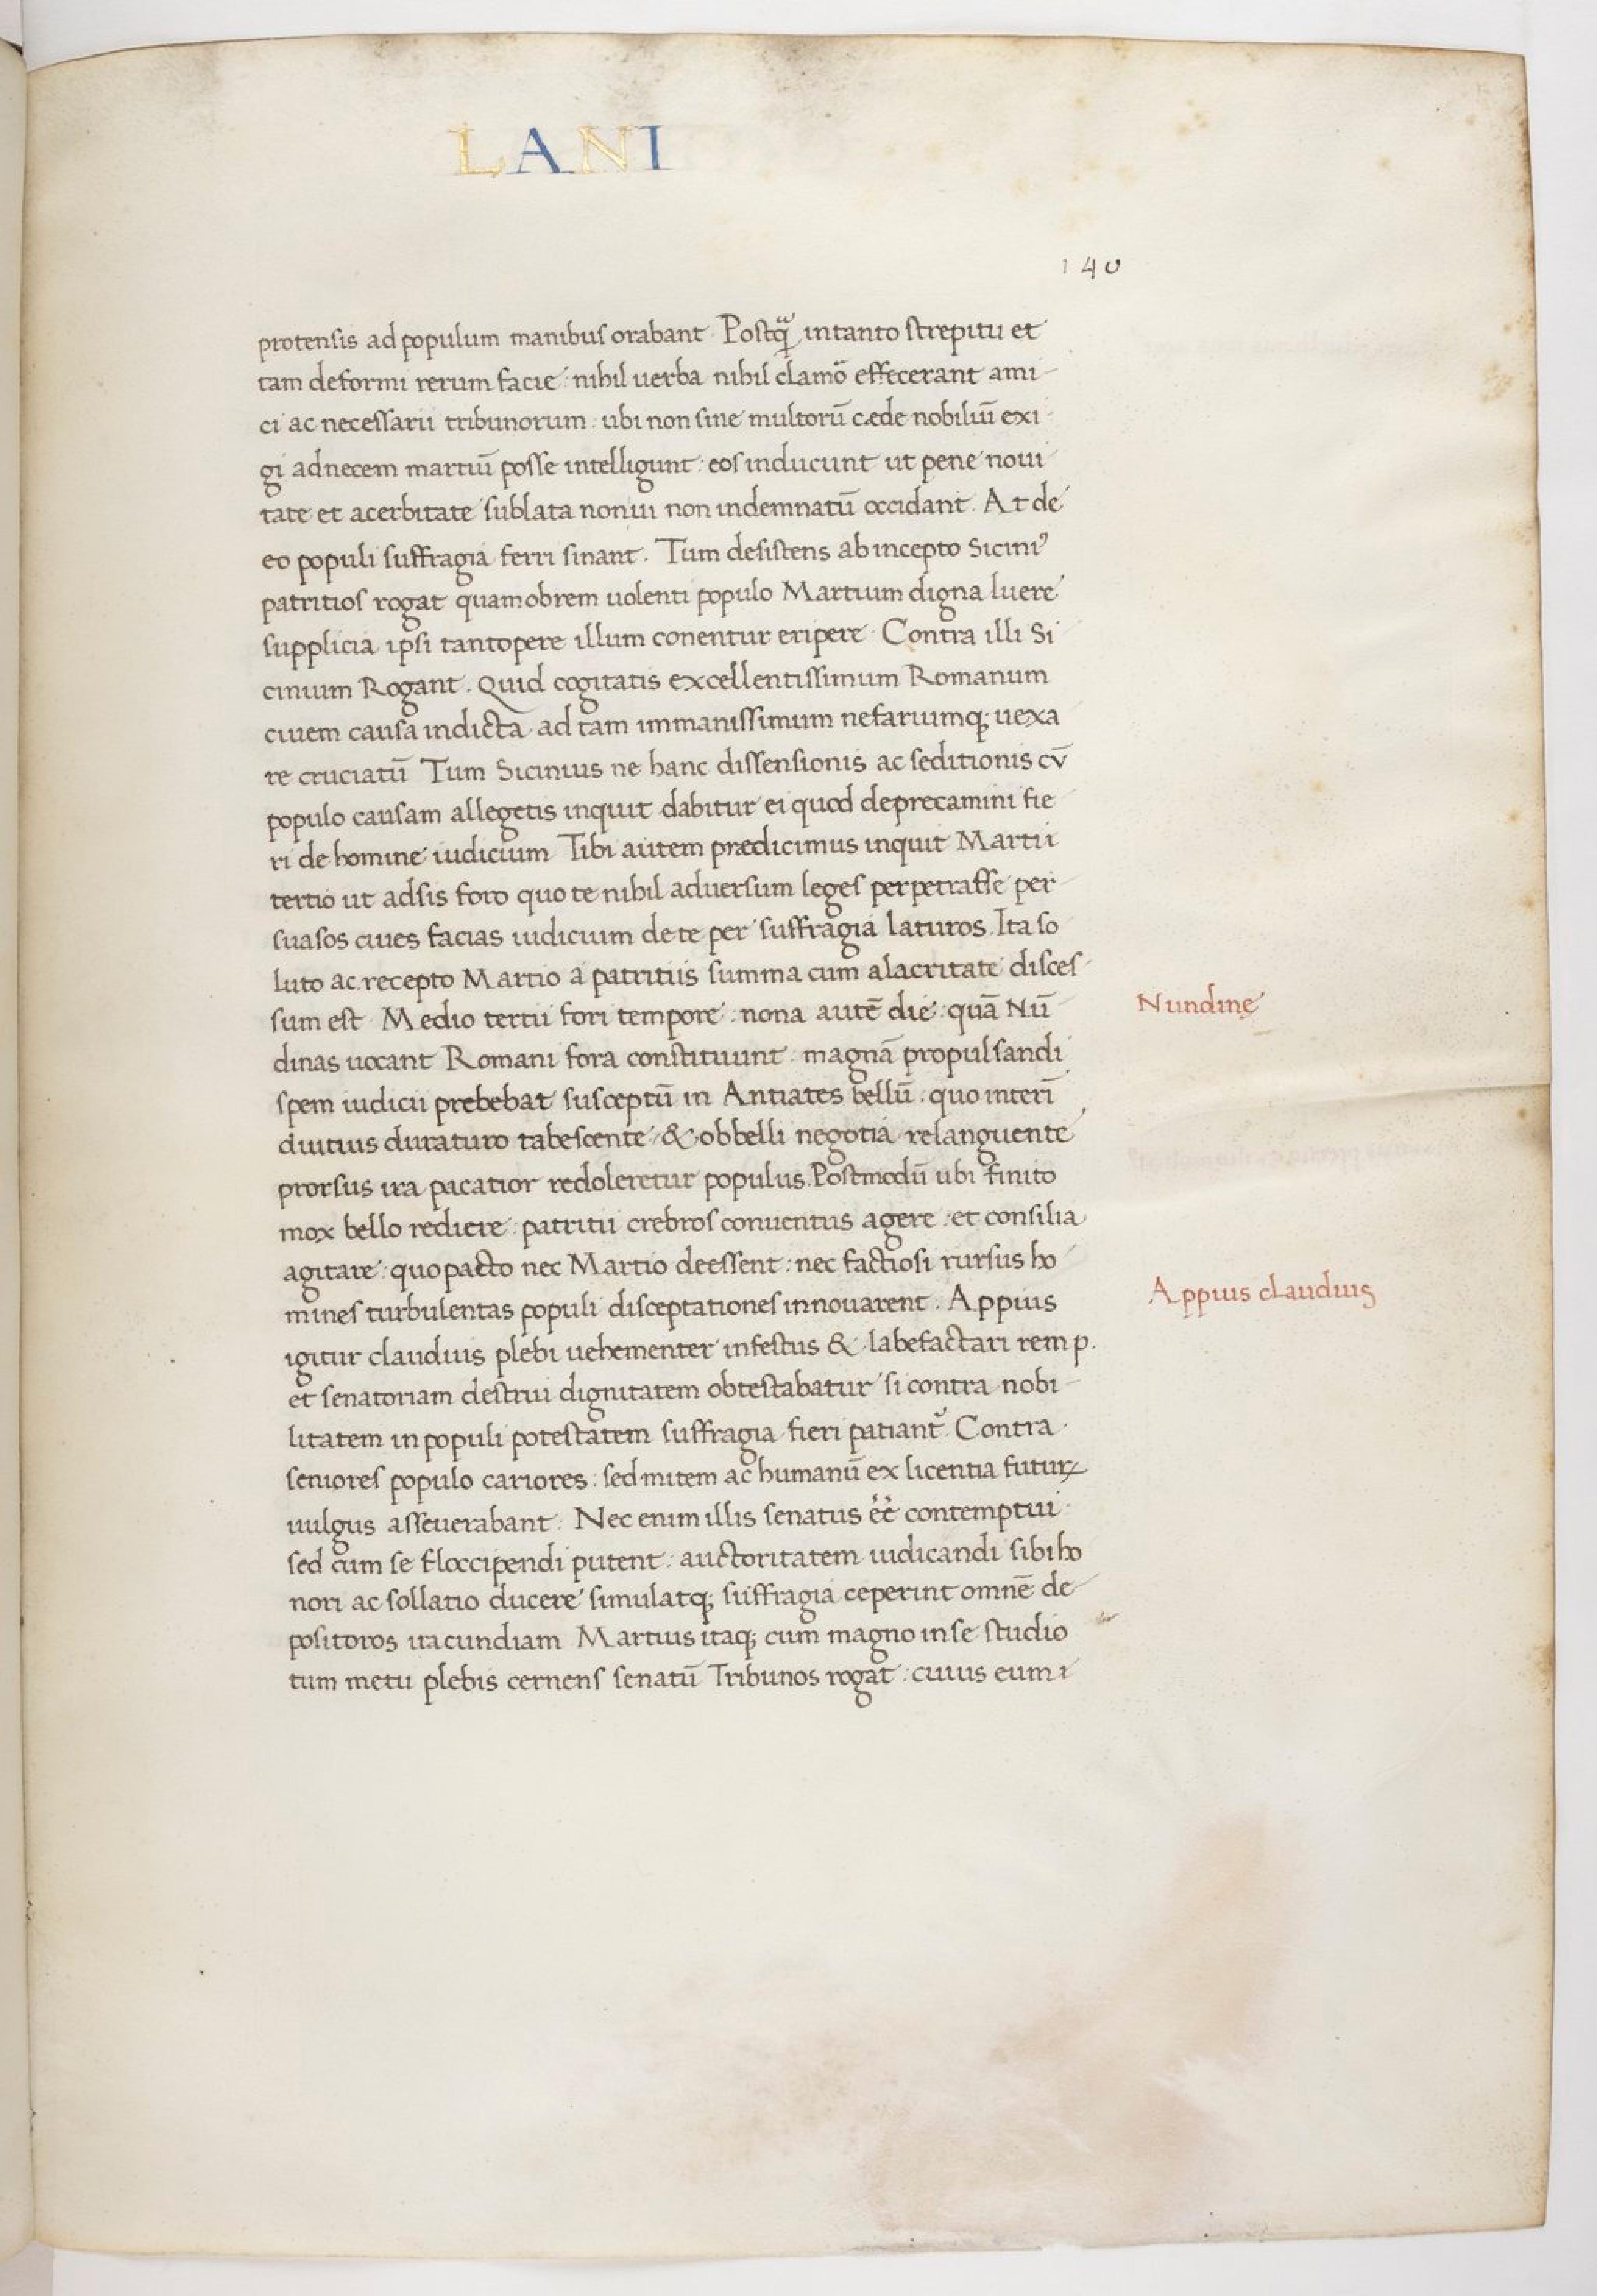 LANI
140
protensis ad populum manibus orabant. Postq̃ intanto strepitu et
tam deformi rerum facie: nihil uerba nihil clamõ effecerant ami-
ci ac necessarii tribunorum: ubi non sine multorũ cæde nobiliũ exi
gi adnecem martiũ posse intelligunt: eos inducunt ut pene noui
tate et acerbitate sublata non ui non indemnatũ occidant. At de
eo populi suffragia ferri sinant. Tum desistens ab incepto Siciniꝰ
patritios rogat quamobrem uolenti populo Martium digna luere
supplicia ipsi tantopere illum conentur eripere. Contra illi Si
cinium Rogant. Quid cogitatis excellentissimum Romanum
ciuem causa indicta ad tam immanissimum nefariumq; uexa
re cruciatũ Tum Sicinius ne hanc dissensionis ac seditionis cṽ
populo causam allegetis inquit dabitur ei quod deprecamini fie
ri de homine iudicium Tibi autem prædicimus inquit Martii
tertio ut adsis foro quo te nihil aduersum leges perpetrasse per
suasos ciues facias iudicium de te per suffragia laturos. Ita so
luto ac recepto Martio a patritiis summa cum alacritate disces
sum est Medio tertii fori tempore: nona autẽ die: quã Nũ
dinas uocant Romani fora constituunt: magnã propulsandi
spem iudicii prebebat susceptũ in Antiates bellũ: quo interĩ
diutius duraturo tabescente & obbelli negotia relanguente
prorsus ira pacatior redoleretur populus. Postmodũ ubi finito
mox bello rediere: patritii crebros conuentus agere: et consilia
agitare: quo pacto nec Martio deessent: nec factiosi rursus ho
mines turbulentas populi disceptationes innouarent. Appius
igitur claudius plebi uehementer infestus & labefactari rem p.
et senatoriam destrui dignitatem obtestabatur si contra nobi-
litatem in populi potestatem suffragia fieri patiant᷑. Contra
seniores populo cariores: sed mitem ac humanũ ex licentia futuꝝ
uulgus asseuerabant: Nec enim illis senatus eẽ contemptui:
sed cum se floccipendi putent: auctoritatem iudicandi sibi ho
nori ac sollatio ducere simulatq; suffragia ceperint omnẽ de-
posituros iracundiam Martius itaq; cum magno in se studio
tum metu plebis cernens senatũ Tribunos rogat: cuius eum i
Nundinę
Appius claudius